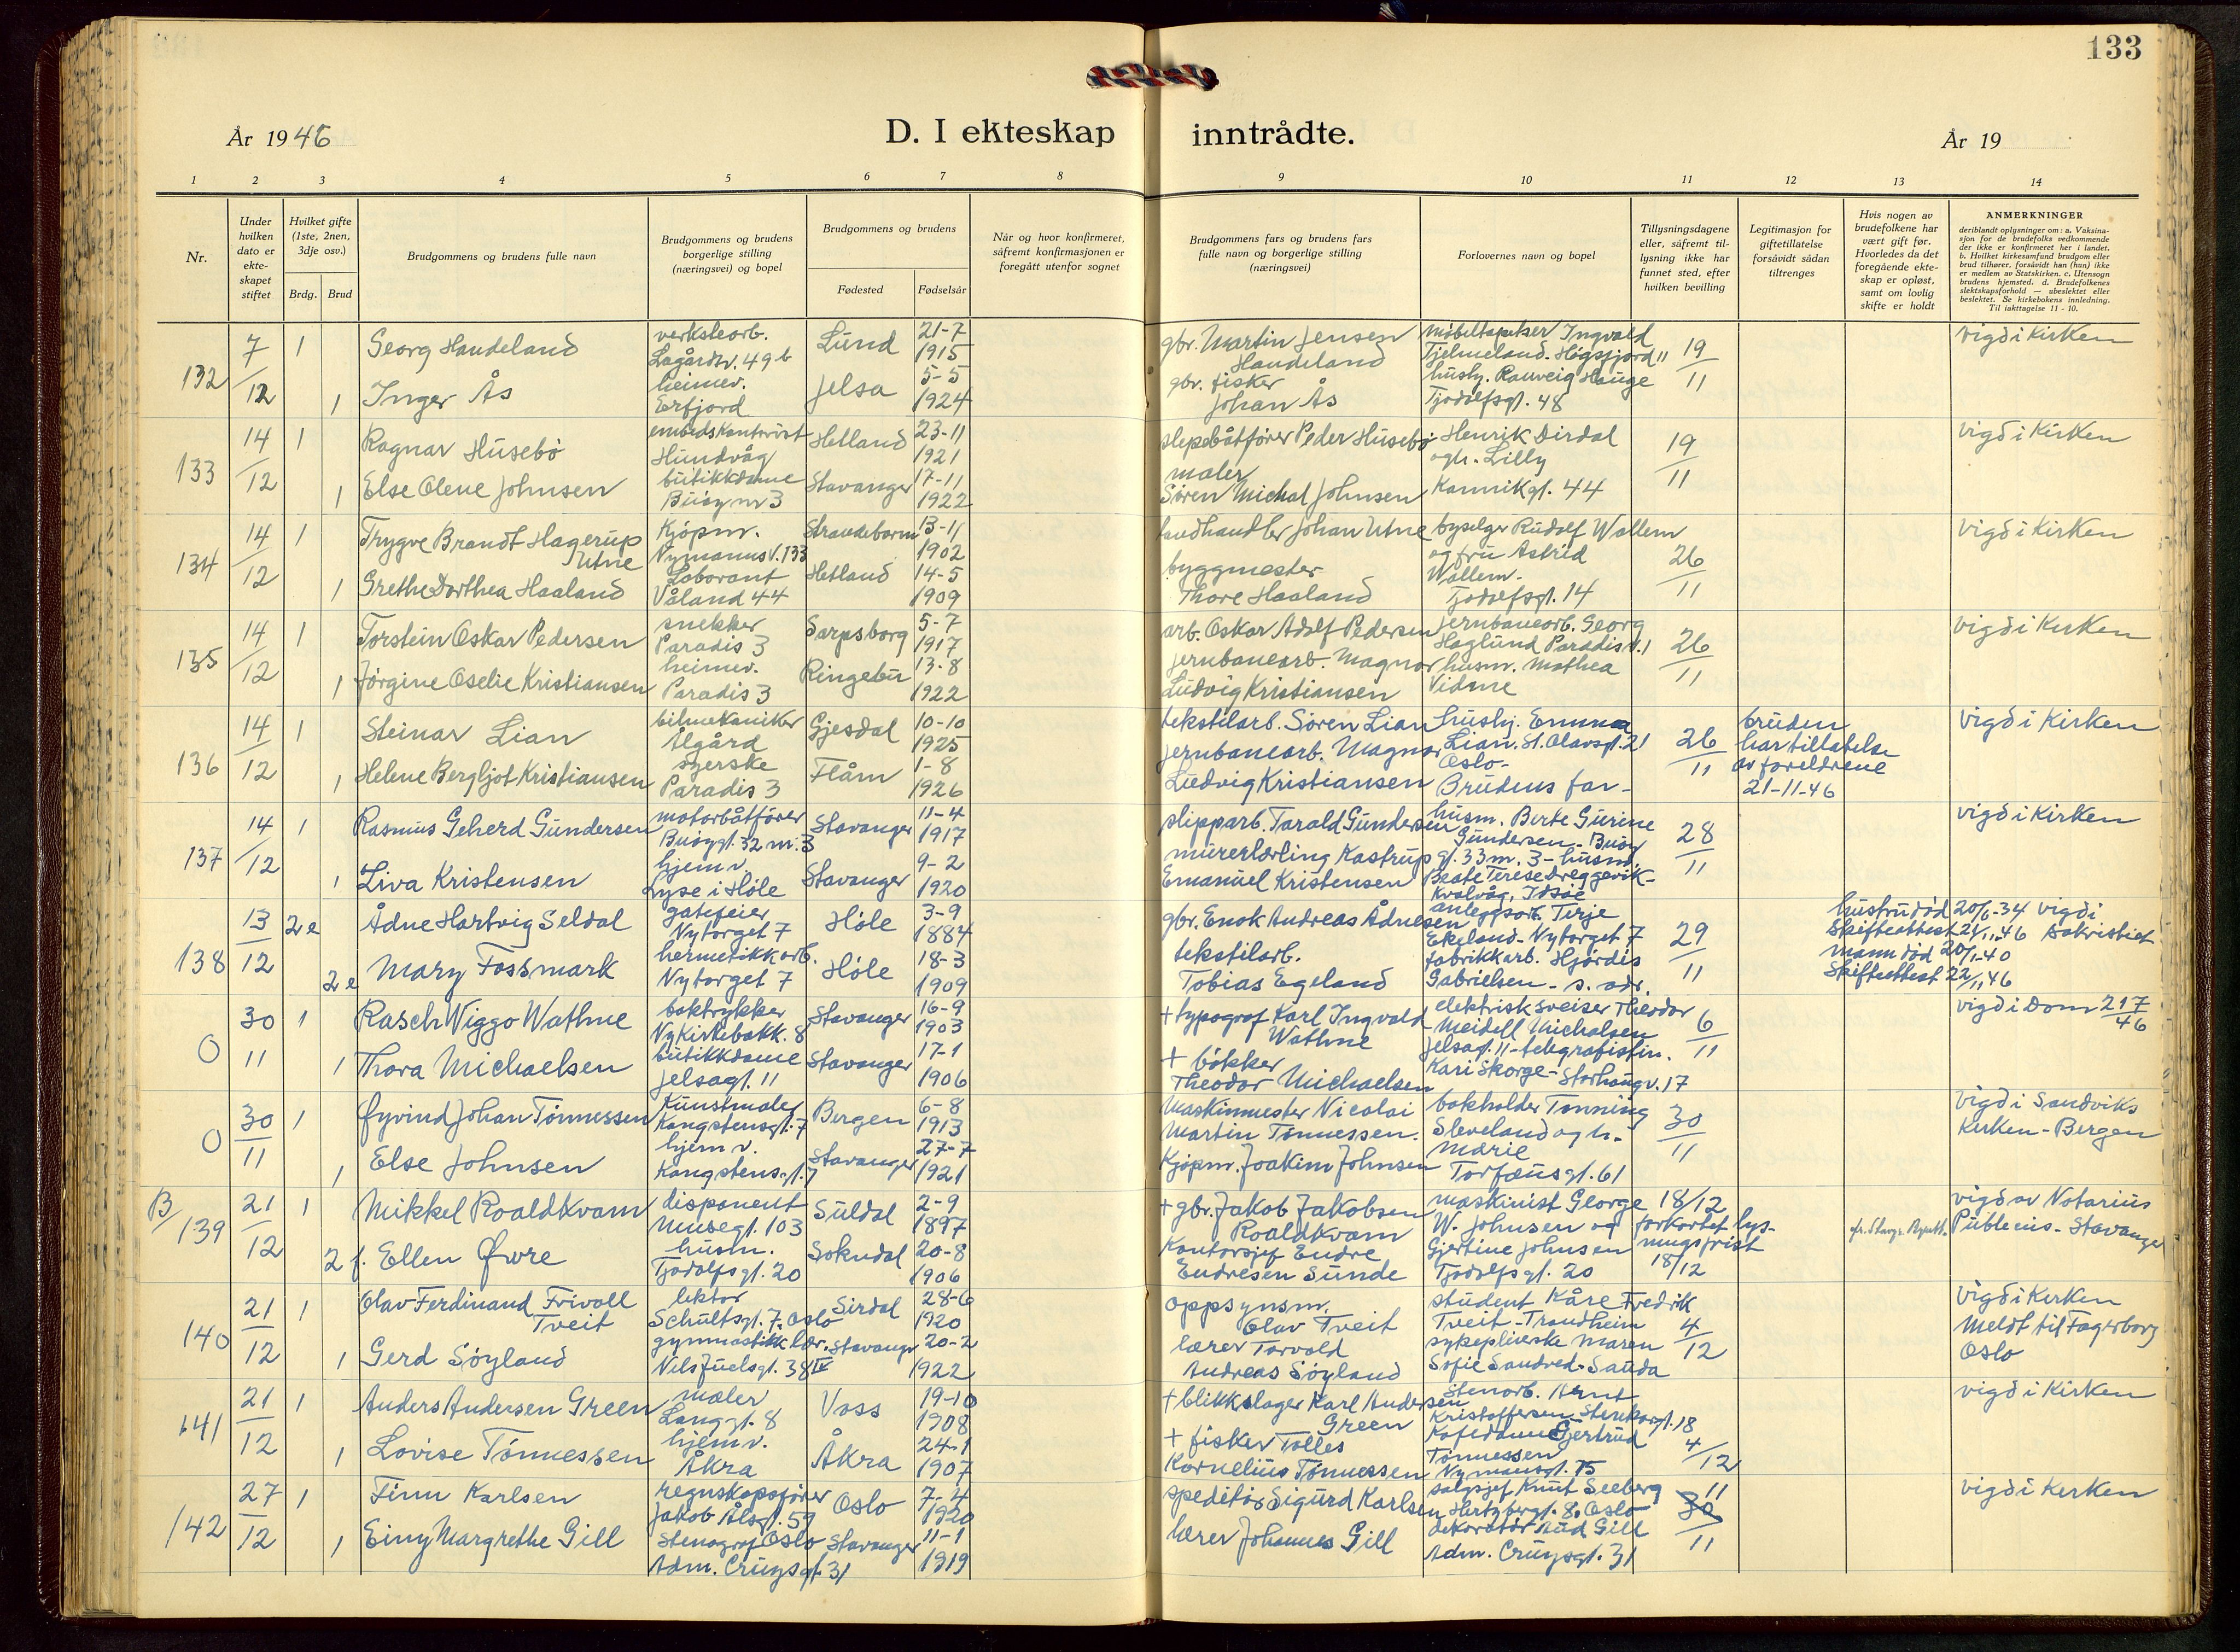 133
År 1946
D. I ekteskap inntrådte.
År 19
1 2 3 4 5 6 7 8 9 10 11 12 13 14
Nr.
Under hvilken dato er ekte-skapet stiftet
Hvilket gifte (1ste, 2nen, 3dje osv.)
Brdg. Brud
Brudgommens og brudens fulle navn
Brudgommens og brudens borgerlige stilling (næringsvei) og bopel
Brudgommens og brudens
Fødested Fødselsår
Når og hvor konfirmeret, såfremt konfirmasjonen er foregått utenfor sognet
Brudgommens fars og brudens fars fulle navn og borgerlige stilling (næringsvei)
Forlovernes navn og bopel
Tillysningsdagene eller, såfremt til-lysning ikke har funnet sted, efter hvilken bevilling
Legitimasjon for giftetillatelse forsåvidt sådan tiltrenges
Hvis nogen av brudefolkene har vært gift før. Hvorledes da det foregående ekte-skap er opløst, samt om lovlig skifte er holdt
ANMERKNINGER
deriblandt oplysninger om: a. Vaksina-sjon for de brudefolks vedkommende der ikke er konfirmeret her i landet. b. Hvilket kirkesamfund brudgom eller brud tilhører, forsåvidt han (hun) ikke er medlem av Statskirken. c. Utensogn brudens hjemsted. d. Brudefolkenes slektskapsforhold — ubeslektet eller beslektet. Se kirkebokens innledning. Til iakttagelse 11 - 10.
132 7/12 1 Georg Haudeland verkstearb. Lagårdsv. 49b Lund 21-7 1915 gbr. Martin Jensen Haudeland møbeltapetser Ingvald Tjelmeland. Høgsfjord" 19/11 vigd i Kirken
1 Inger Ås heimev. Erfjord Jelsa 5-5 1924 gbr. fisker Johan Ås hush. Rauveig Hauge Tjodolfsgt. 48
133 14/12 1 Ragnar Husebø embedskontorist Hundvåg Hetland 23-11 1921 slepebåtfører Peder Husebø Henrik Dirdal og h. Lilly Kannikgt. 44 19/11 vigd i Kirken
1 Else Olene Johnsen butikkdame Buøy nr 3 Stavanger 17-11 1922 maler Søren Michal Johnsen
134 14/12 1 Trygve Brandt Hagerup Utne Kjøpm. Nymannsv. 133 Strandebarm 13-11 1902 landhandler Johan Utne byselger Rudolf Wallem og fru Astrid Wallem - Tjodolfsgt. 14 26/11 vigd i Kirken
1 Grethe Dorthea Haaland Laborant Våland 44 Hetland 14-5 1909 byggmester Thore Haaland
135 14/12 1 Torstein Oskar Pedersen snekker Paradis 3 Sarpsborg 5-7 1917 arb. Oskar Adolf Pedersen jernbanearb. Georg Haglund Paradisv. 1 26/11 vigd i Kirken
1 Jørgine Oselie Kristiansen heimev. Paradis 3 Ringebu 13-8 1922 jernbanearb. Magnar Ludvig Kristiansen husm. Mathea Vidme
136 14/12 1 Steinar Lian bilmekaniker Ålgård Gjesdal 10-10 1925 tekstilarb. Søren Lian hushj. Emma Lian. St. Olavsgt. 21 Oslo - 26/11 bruden har tillatelse av foreldrene 21-11-46 vigd i Kirken
1 Helene Bergljot Kristiansen syerske Paradis 3 Flåm 1-8 1926 jernbanearb. Magnar Ludvig Kristiansen Brudens far -
137 14/12 1 Rasmus Geherd Gundersen motorbåtfører Buøygt. 32 nr. 3 Stavanger 11-4 1917 slipparb. Tarald Gundersen husm. Berte Gurine Gundersen - Buøy gt. 33 nr. 3 - 28/11 vigd i Kirken
1 Liva Kristensen hjem v. Lyse i Høle Stavanger 9-2 1920 murerlærling Kastrup Emanuel Kristensen husm. Beate Terese Dreggevik - Kvalvåg, Idsøe
138 13/12 2e Ådne Hartvig Seldal gatefeier Nytorget 7 Høle 3-9 1884 gbr. Enok Andreas Ådnesen anleggsarb. Terje Ekeland - Nytorget 7 29/11 hustru død 20/6-34 Skifteattest 21/11.46 vigd i Sakristiet
2e Mary Fossmark hermetikkarb. Nytorget 7 Høle 18-3 1909 tekstilarb. Tobias Egeland fabrikkarb. Hjørdis Gabrielsen - s. adr. mann død 20/1-40 Skifteattest 22/11.46
0 30/11 1 Rasch Viggo Wathne boktrykker Ny Kirkebakk. 8 Stavanger 16-9 1903 + typograf Karl Ingvald Wathne elektrisk sveiser Theodor Meidell Michalsen Jelsagt. 11 - 6/11 vigd i Dom 217/46
1 Thora Michaelsen butikkdame Jelsagt. 11 Stavanger 17-1 1906 + bøkker Theodor Michaelsen telegrafistin. Kari Skorge - Storhaugv. 17
0 30/11 1 Øyvind Johan Tønnessen Kunstmaler Kongstensgt. 7 Bergen 6-8 1913 Maskinmester Nicolai Martin Tønnessen. bokholder Tønning Sleveland og h. Marie Torfæusgt. 61 30/11 vigd i Sandviks Kirken - Bergen
1 Else Johnsen hjem v. Kongstensgt. 7 Stavanger 27-7 1921 Kjøpm. Joakim Johnsen
B/139 21/12 1 Mikkel Roaldkvam disponent Musegt. 103 Suldal 2-9 1897 + gbr. Jakob Jakobsen Roaldkvam maskinist George W. Johnsen og Gjertine Johnsen Tjodolfsgt. 20 18/12 forkortet lysningsfrist 18/12 vigd av Notarius Publicus - Stavanger
2 f. Ellen Øvre husm. Tjodolfsgt. 20 Sokndal 20-8 1906 Kontorsjef Endre Endresen Sunde
140 21/12 1 Olav Ferdinand Frivoll Tveit lektor Schultsgt. 7. Oslo Sirdal 28-6 1920 oppsynsm. Olav Tveit student Kåre Fredrik Tveit - Trondheim 4/12 vigd i Kirken Meldt til Fagerborg Oslo
1 Gerd Søyland gymnastikk lær. Nils Juelsgt. 38 IV Stavanger 20-2 1922 lærer Torvald Andreas Søyland sykepleierske Maren Sofie Sandred - Sauda
141 21/12 1 Anders Andersen Green maler Langgt. 8 Voss 19-10 1908 + blikkslager Karl Andersen Green Stenarb. Arnt Kristoffersen Stenkargt. 18 4/12 vigd i Kirken
1 Lovise Tønnessen hjem v. Åkra Åkra 24-1 1907 + fisker Tolles Kornelius Tønnessen Kafedame Gjertrud Tønnessen Nymansgt. 75
142 27/12 1 Finn Karlsen regnskapsfører Jakob Ålsgt. 59 Oslo Oslo 7-4 1920 speditør Sigurd Karlsen salgsjef Knut Seeberg Hertzbergt. 8. Oslo 11 30/11 vigd i Kirken
1 Einy Margrethe Gill Stenograf Adm. Cruysgt. 31 Stavanger 11-1 1919 lærer Johannes Gill dekoratør Aud Gill Adm. Cruysgt. 31